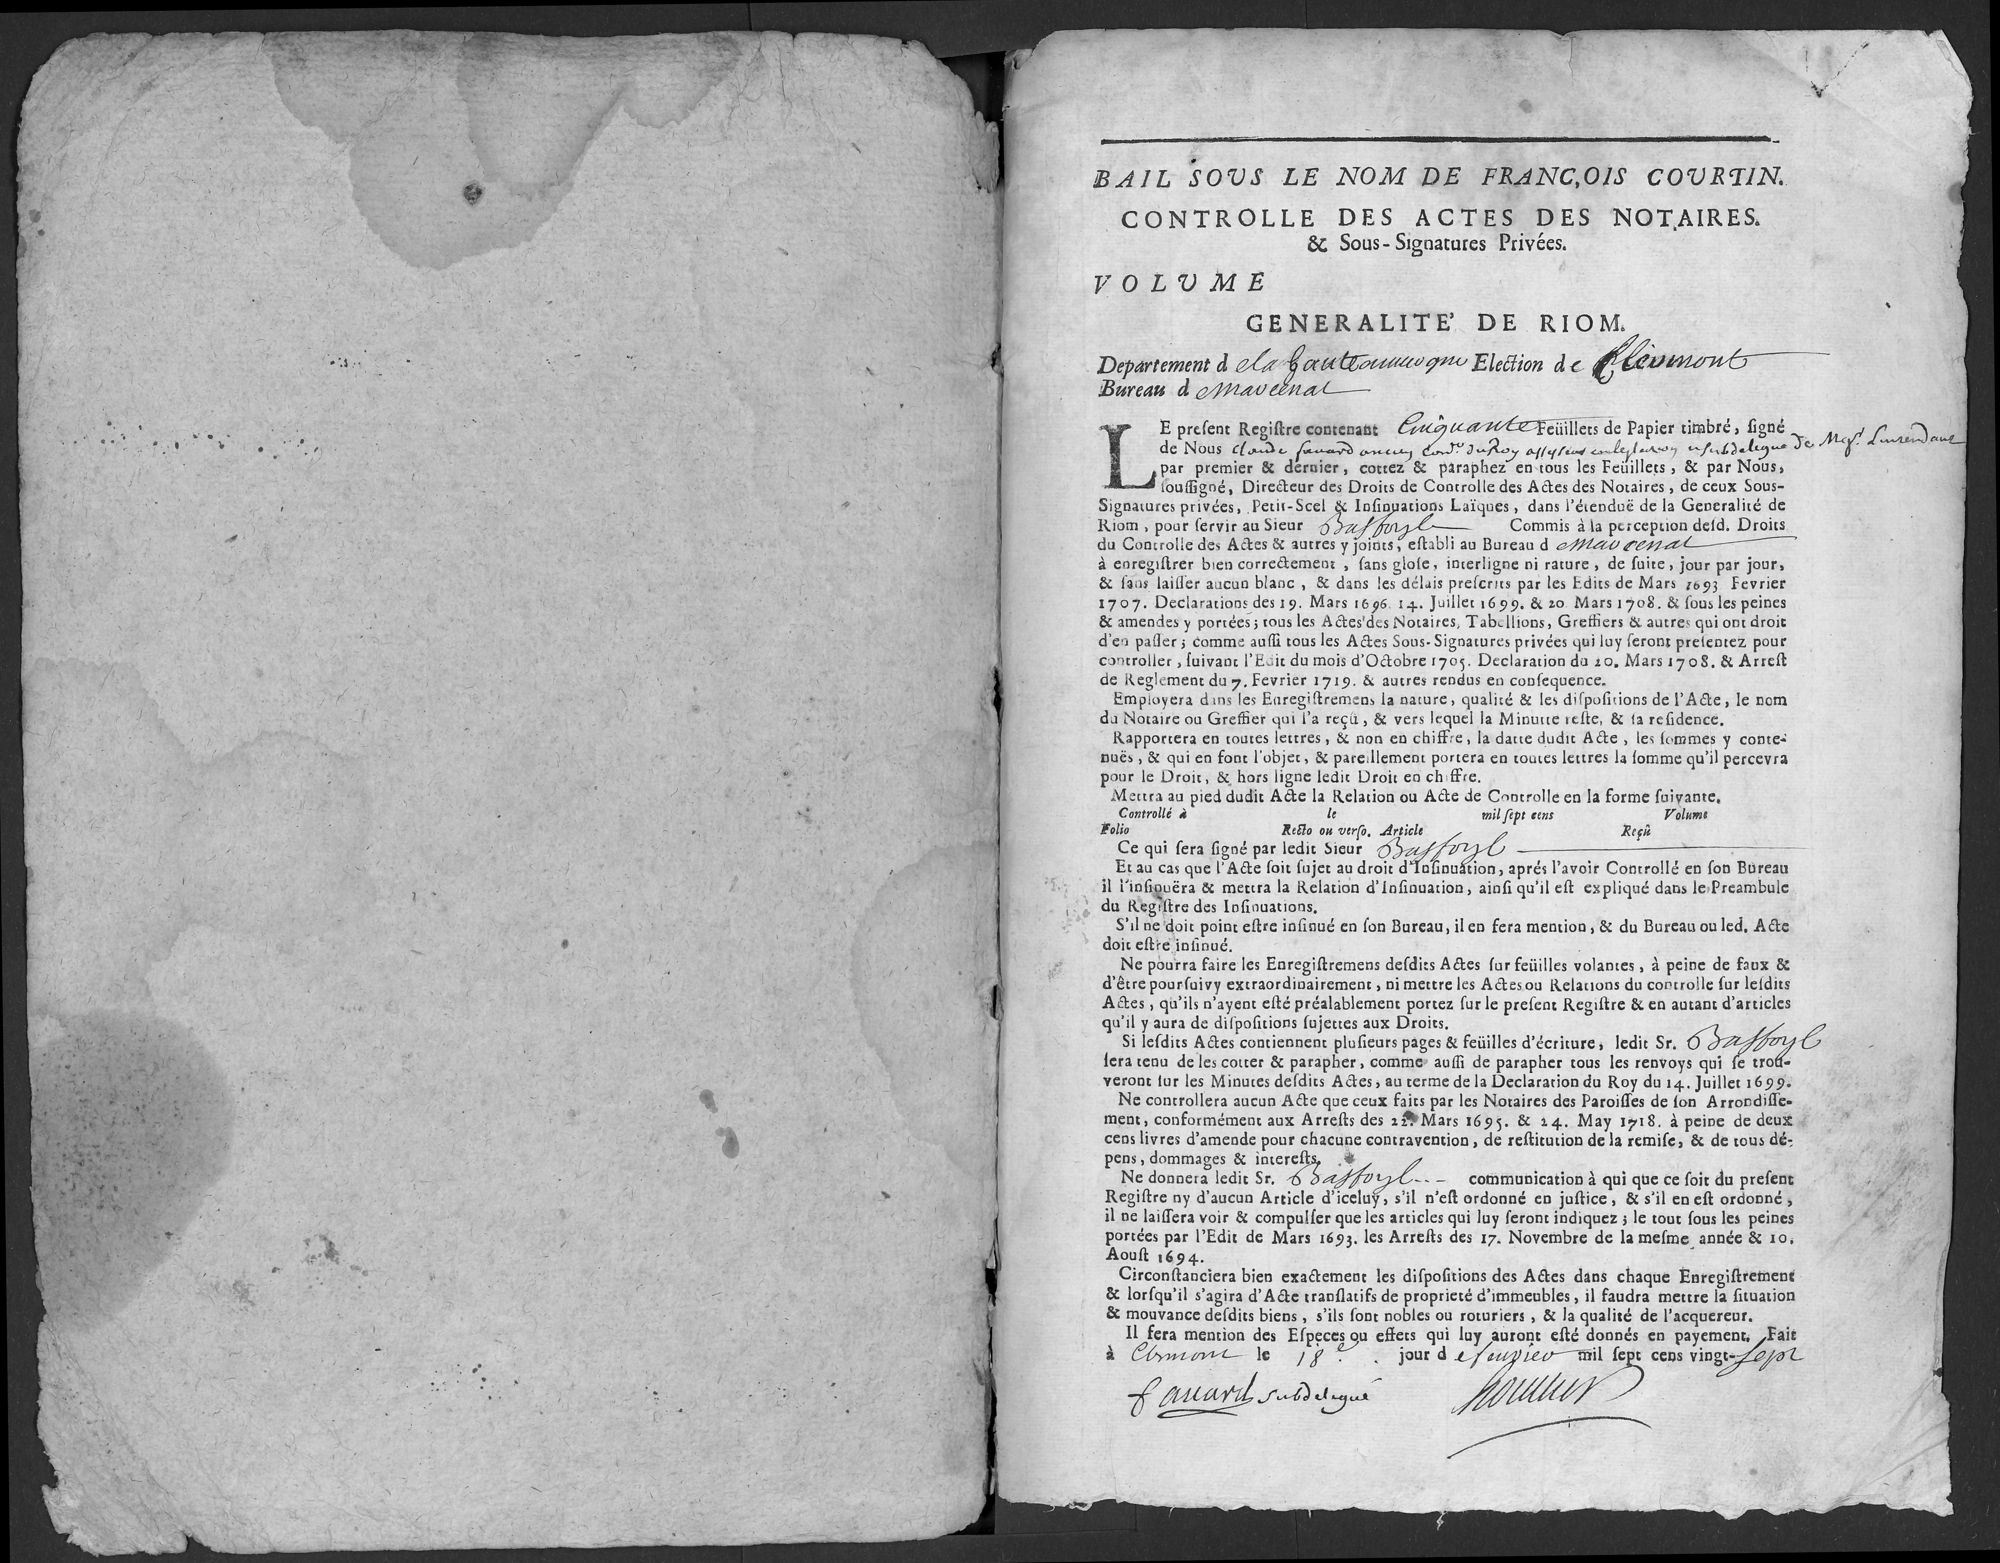 BAIL SOVS LE NOM DE FRANC,OIS COVRTIN.
CONTROLLE DES ACTES DES NOTAIRES.
& Sous-Signatures Privées.
VOLVME
GENERALITE' DE RIOM.
Departement d ela hauteauvergne Election de Clermont
Bureau d emarcenat
LE preſent Regiſtre contenant Cinquante Feüillets de Papier timbré, ſigné
de Nous Claude favard du Roy subdelegue De Mgr. Lintendant
par premier & dernier, cottez & paraphez en tous les Feüillets, & par Nous,
ſouſſigné, Directeur des Droits de Controlle des Actes des Notaires, de ceux Sous-
Signatures privées, Petit-Scel & Inſinuations Laïques, dans l'étenduë de la Generalité de
Riom, pour ſervir au Sieur Basforyl Commis à la perception deſd. Droits
du Controlle des Actes & autres y joints, eſtabli au Bureau d emarcenat
à enregiſtrer bien correctement, ſans gloſe, interligne ni rature, de ſuite, jour par jour,
& ſans laiſſer aucun blanc, & dans les délais preſcrits par les Edits de Mars 1693 Fevrier
1707. Declarations des 19. Mars 1696. 14. Juillet 1699. & 20 Mars 1708. & ſous les peines
& amendes y portées; tous les Actes des Notaires, Tabellions, Greffiers & autres qui ont droit
d'en paſſer; comme auſſi tous les Actes Sous-Signatures privées qui luy ſeront preſentez pour
controller, ſuivant l'Edit du mois d'Octobre 1705. Declaration du 20. Mars 1708. & Arreſt
de Reglement du 7. Fevrier 1719. & autres rendus en conſequence.
Employera dans les Enregiſtremens la nature, qualité & les diſpoſitions de l'Acte, le nom
du Notaire ou Greffier qui l'a reçû, & vers lequel la Minutte reſte, & ſa reſidence.
Rapportera en toutes lettres, & non en chiffre, la datte dudit Acte, les ſommes y conte-
nuës, & qui en font l'objet, & pareillement portera en toutes lettres la ſomme qu'il percevra
pour le Droit, & hors ligne ledit Droit en chiffre.
Mettra au pied dudit Acte la Relation ou Acte de Controlle en la forme ſuivante.
Controllé à le mil ſept cens Volume
Folio Recto ou verſo. Article Reçû
Ce qui ſera ſigné par ledit Sieur Basforyl
Et au cas que l'Acte ſoit ſujet au droit d'Inſinuation, aprés l'avoir Controllé en ſon Bureau
il l'inſinuëra & mettra la Relation d'Inſinuation, ainſi qu'il eſt expliqué dans le Preambule
du Regiſtre des Inſinuations.
S'il ne doit point eſtre inſinué en ſon Bureau, il en fera mention, & du Bureau ou led. Acte
doit eſtre inſinué.
Ne pourra faire les Enregiſtremens deſdits Actes ſur feüilles volantes, à peine de faux &
d'être pourſuivy extraordinairement, ni mettre les Actes ou Relations du controlle ſur leſdits
Actes, qu'ils n'ayent eſté préalablement portez ſur le preſent Regiſtre & en autant d'articles
qu'il y aura de diſpoſitions ſujettes aux Droits.
Si leſdits Actes contiennent pluſieurs pages & feüilles d'écriture, ledit Sr. Basforyl
ſera tenu de les cotter & parapher, comme auſſi de parapher tous les renvoys qui ſe trou-
veront ſur les Minutes deſdits Actes, au terme de la Declaration du Roy du 14. Juillet 1699.
Ne controllera aucun Acte que ceux faits par les Notaires des Paroiſſes de ſon Arrondiſſe-
ment, conformément aux Arreſts des 22. Mars 1695. & 24. May 1718. à peine de deux
cens livres d'amende pour chacune contravention, de reſtitution de la remiſe, & de tous dé-
pens, dommages & intereſts.
Ne donnera ledit Sr. Basforyl communication à qui que ce ſoit du preſent
Regiſtre ny d'aucun Article d'iceluy, s'il n'eſt ordonné en juſtice, & s'il en eſt ordonné,
il ne laiſſera voir & compulſer que les articles qui luy ſeront indiquez; le tout ſous les peines
portées par l'Edit de Mars 1693. les Arreſts des 17. Novembre de la meſme année & 10.
Aouſt 1694.
Circonſtanciera bien exactement les diſpoſitions des Actes dans chaque Enregiſtrement
& lorſqu'il s'agira d'Acte tranſlatifs de proprieté d'immeubles, il faudra mettre la ſituation
& mouvance deſdits biens, s'ils ſont nobles ou roturiers, & la qualité de l'acquereur.
Il fera mention des Eſpeces ou effets qui luy auront eſté donnés en payement. Fait
à Clermont le 18e. jour d efevrier mil ſept cens vingt-sept
favard subdelegué